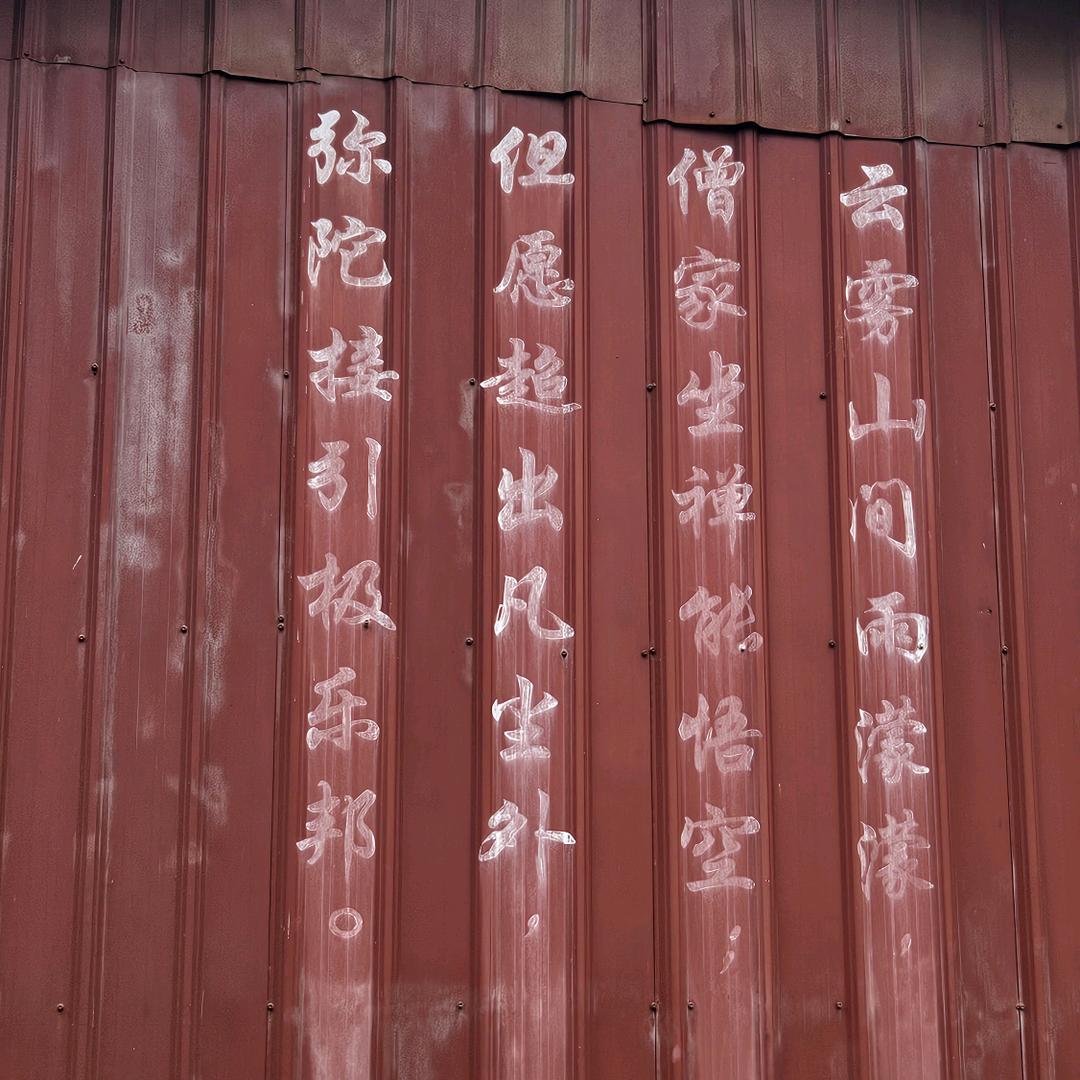 云雾山间雨濛濛，
僧家坐禅能悟空；
但愿超出凡尘外，
弥陀接引极乐邦。